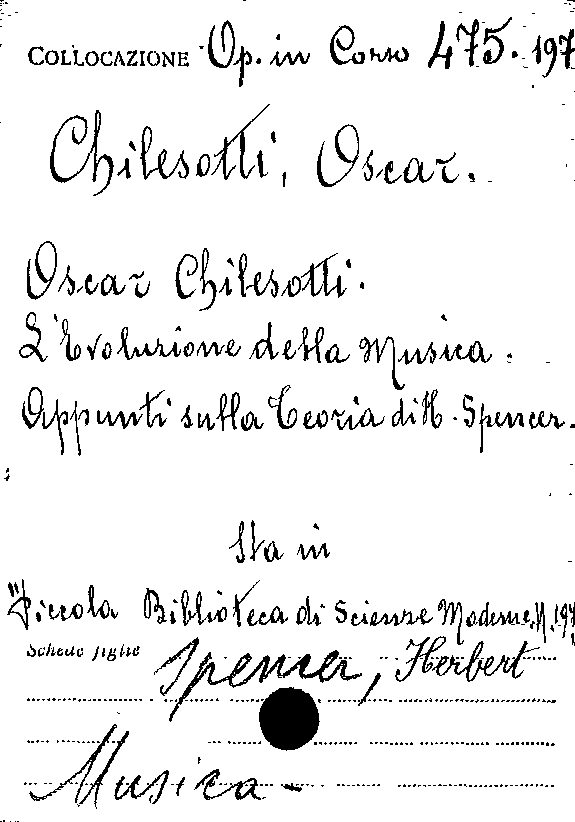 COLLOCAZIONE Op. in Corso 475. 197
Chilesotti, Oscar.
Oscar Chilesotti.
L'Evoluzione della Musica.
Appunti sulla Teoria di H. Spencer.
Sta in
"Piccola Biblioteca di Scienze Moderne, N. 197
Schede figlie Spencer, Herbert
Musica-